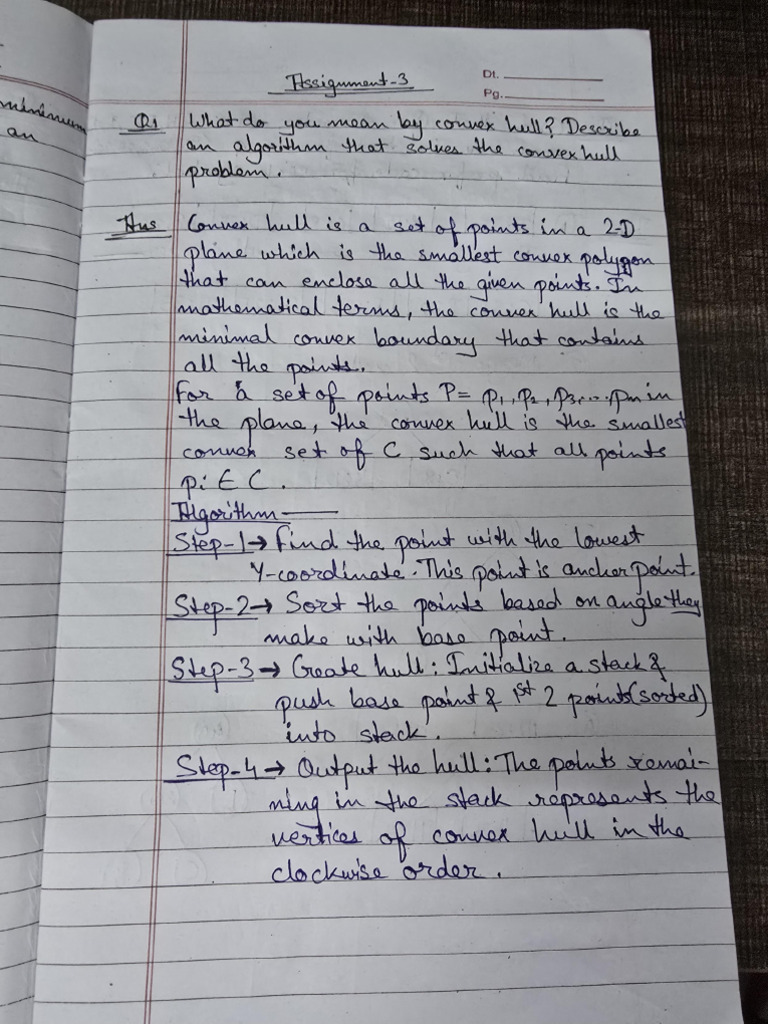 minimum
an
Assignment-3
Dt.
Pg.
Q1 What do you mean by convex hull? Describe
an algorithm that solves the convex hull
problem.
Ans Convex hull is a set of points in a 2-D
plane which is the smallest convex polygon
that can enclose all the given points. In
mathematical terms, the convex hull is the
minimal convex boundary that contains
all the points.
For a set of points P = p1, p2, p3,... pn in
the plane, the convex hull is the smallest
convex set of C such that all points
pi ∈ C.
Algorithm —
Step-1→ Find the point with the lowest
Y-coordinate. This point is ancher point.
Step-2→ Sort the points based on angle they
make with base point.
Step-3→ Create hull: Initialize a stack &
push base point & 1st 2 points(sorted)
into stack.
Step-4→ Output the hull: The points remai-
ning in the stack represents the
vertices of convex hull in the
clockwise order.